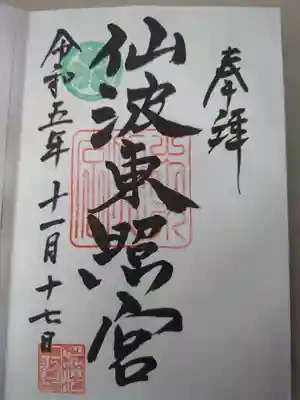 奉拝
仙波東照宮
令和五年十一月十七日